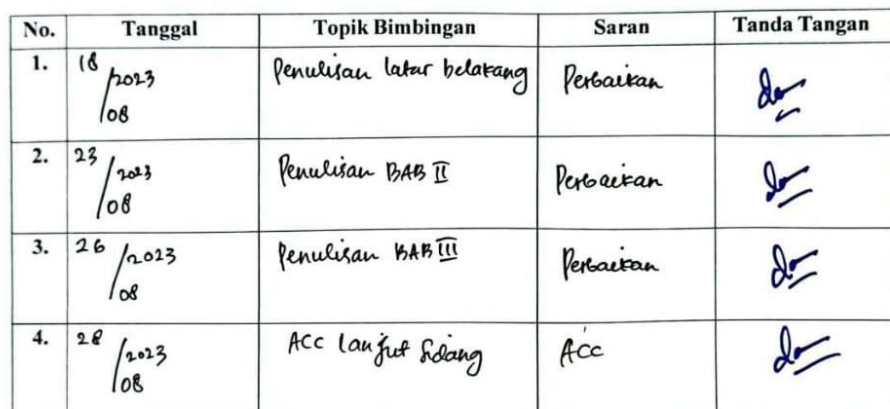 No. Tanggal Topik Bimbingan Saran Tanda Tangan
1. 18/08/2023 Penulisan latar belakang Perbaikan
2. 23/08/2023 Penulisan BAB II Perbaikan
3. 26/08/2023 Penulisan BAB III Perbaikan
4. 28/08/2023 ACC lanjut Sidang ACC